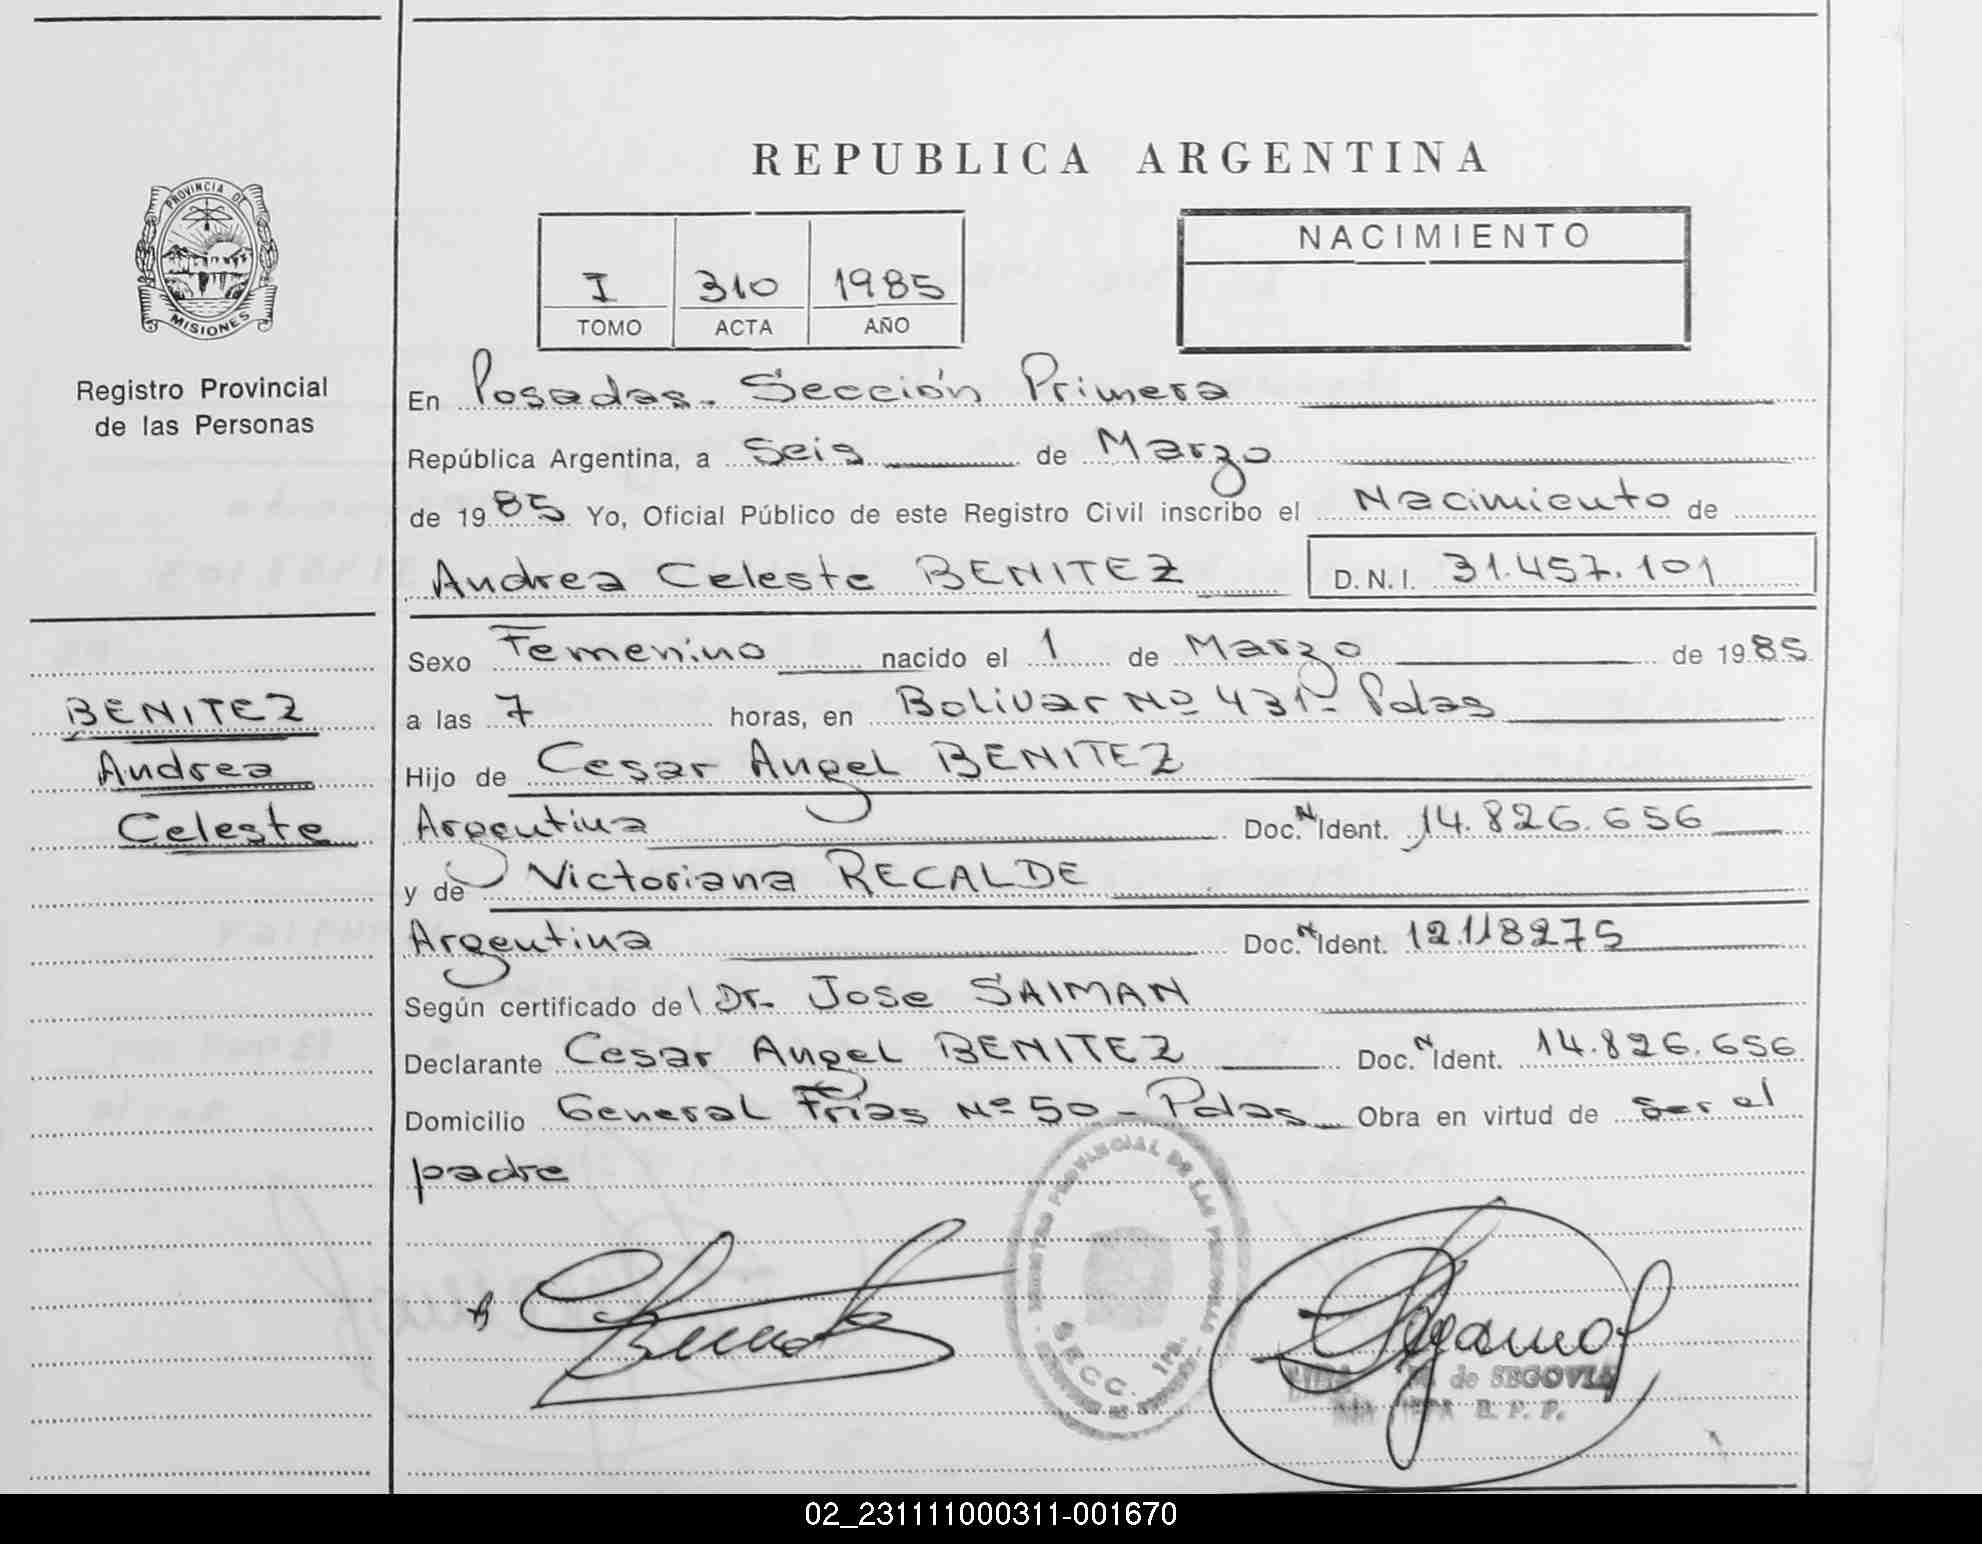 REPUBLICA ARGENTINA
PROVINCIA DE
MISIONES
Registro Provincial
de las Personas
NACIMIENTO
I 310 1985
TOMO ACTA AÑO
En Posadas. Sección Primera
República Argentina, a Seis de Marzo
de 1985 Yo, Oficial Público de este Registro Civil inscribo el Nacimiento de
Andrea Celeste BENITEZ D.N.I. 31.457.101
Sexo Femenino nacido el 1 de Marzo de 1985
a las 7 horas, en Bolivar Nº 431- Pdas
Hijo de Cesar Angel BENITEZ
Argentina Doc. N Ident. 14.826.656
y de Victoriana RECALDE
Argentina Doc. N Ident. 12.118275
Según certificado del Dr. Jose SAIMAN
Declarante Cesar Angel BENITEZ Doc. N Ident. 14.826.656
Domicilio General Frias Nº 50 - Pdas Obra en virtud de ser el
padre
BENITEZ
Andrea
Celeste
REGISTRO PROVINCIAL DE LAS PERSONAS
SECC. 1ra.
de SEGOVIA
02_231111000311-001670